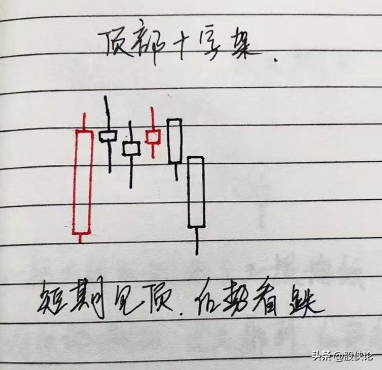 顶部十字架.
短期见顶.后势看跌
头条 @股快论